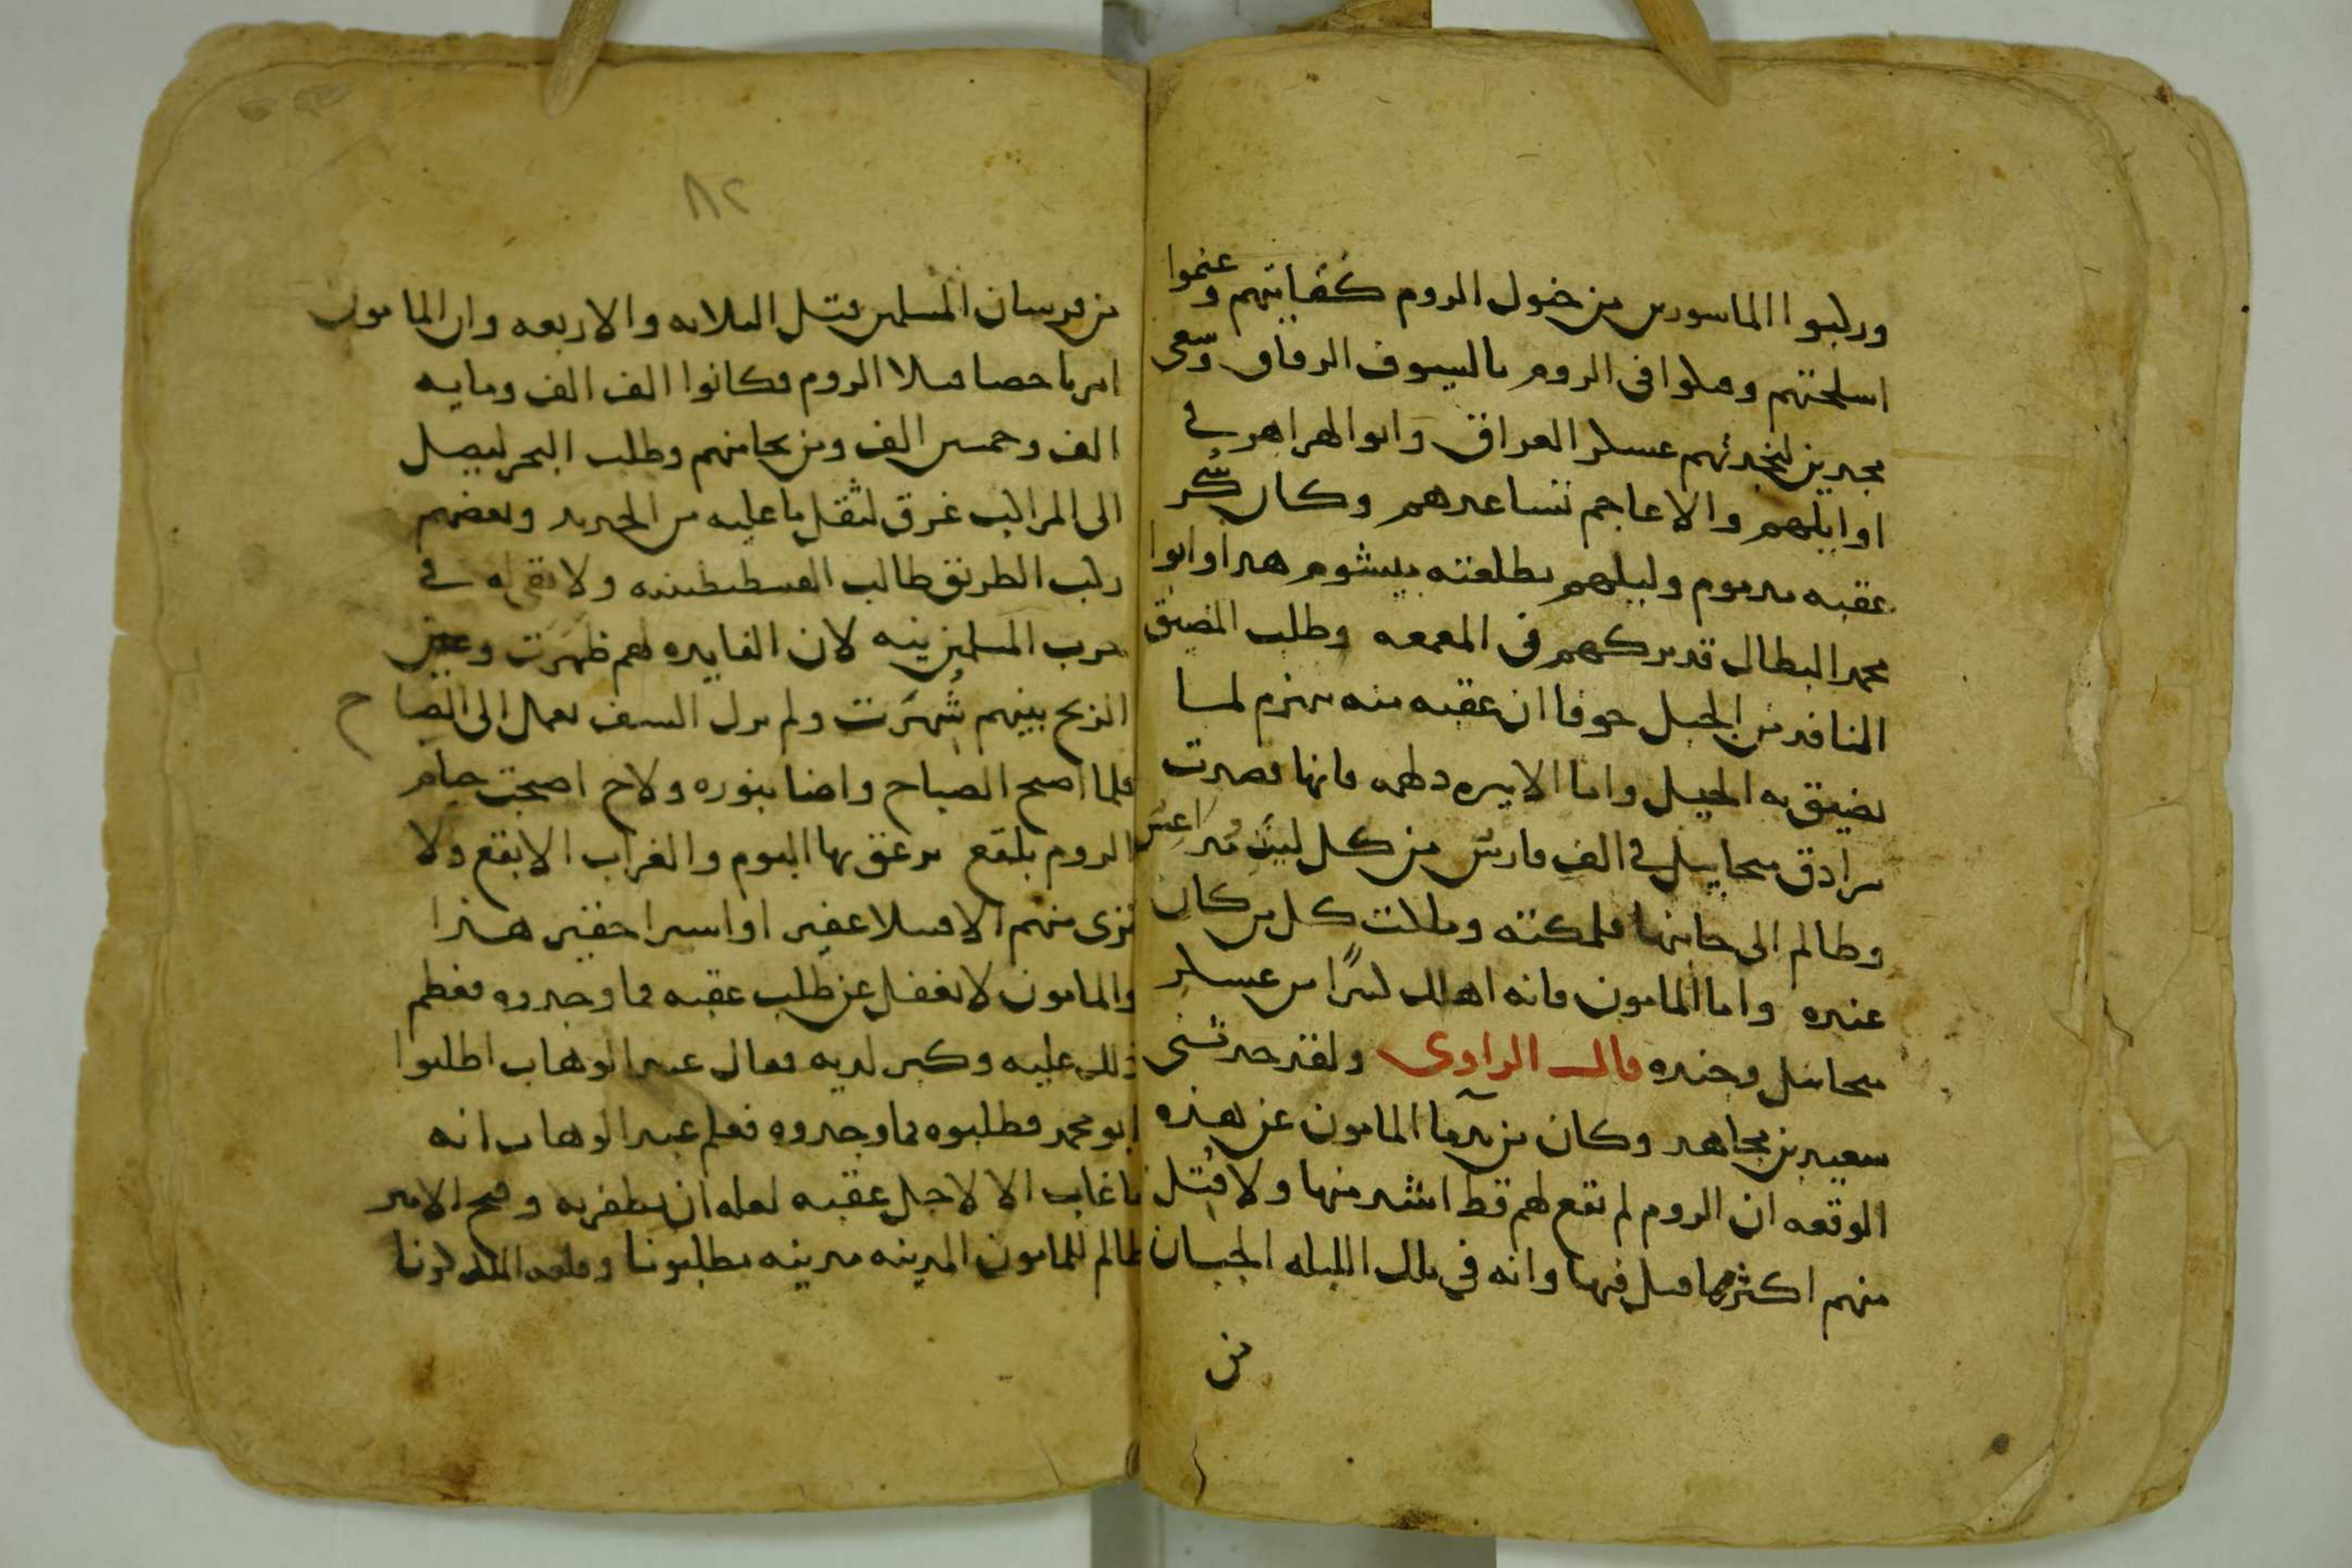 وركبوا الماسورين من خيول الروم كفايتهم وغنموا
اسلحتهم وحملوا فى الروم بالسيوف الرقاق وسعى
مجدين لنجدتهم عسكر العراق وابو الهزاهز فى
اوايلهم والاعاجم تساعدهم وكان
عقبه مدبرهم ودليلهم بطلعته هدا وابوا
محمد البطال قد تركهم فى المعمعه وطلب المضيق
النافد من الجبل خوفا ان عقبه منه ينهزم لما
يضيق به الحيل واما الاميره دلهمه فانها قصدت
سرادق ميخاييل فى الف فارس من كل ليث
وظالم الى جانبها فملكته وملات كل من كان
عنده واما المامون فانه اهلك كثيرًا من عسكر
ميخاييل وجنده قال الراوى ولقد حدثنى
سعيد بن مجاهد وكان من ندما المامون عن هذه
الوقعه ان الروم لم تقع لهم قط اشد منها ولا قُتل
منهم اكثر مما قتل فيها وانه فى تلك الليله الجبان
من
٨٢
من فرسان المسلمين قتل الثلاثه والاربعه وان المامون
امر باحصا قتلا الروم فكانوا الف الف ومايه
الف وخمسين الف ومن نجا منهم وطلب البحر ليصل
الى المراكب غرق لثقل ما عليه من الحديد وبعضهم
ركب الطريق طالب القسطنطينيه ولا بقى له فى
حرب المسلمين نيه لان الفايده لهم ظهرت وعين
الربح بينهم شُهرت ولم يزل السيف يعمل الى الصباح
فلما اصبح الصباح واضا بنوره ولاح اصبحت خيام
الروم بلقع يزعق بها البوم والغراب الابقع ولا
ترى منهم الا قتيلا عفير او اسيرا حقير هذا
والمامون لا يغفل عن طلب عقبه فما وجدوه فعظم
ذلك عليه وكبر لديه فقال عبد الوهاب اطلبوا
ابو محمد فطلبوه فما وجدوه فعلم عبد الوهاب انه
ما غاب الا لاجل عقبه لعله ان يظفر به وفتح الامير
ظالم للمامون المدينه مدينه